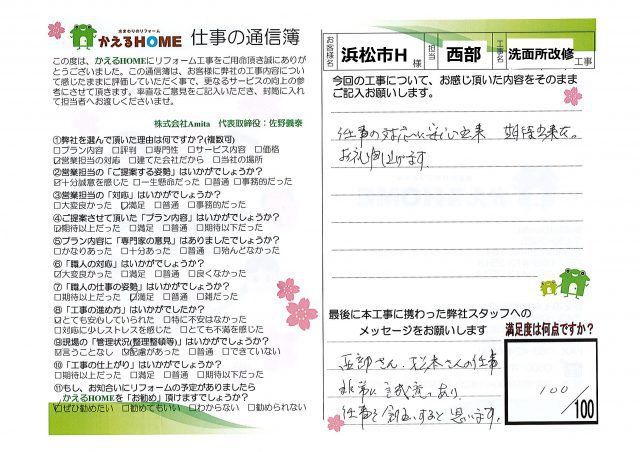 水まわりのリフォーム
かえるHOME 仕事の通信簿
この度は、かえるHOMEにリフォーム工事をご用命頂き誠にありが
とうございました。この通信簿は、お客様に弊社の工事内容につい
て感じたままに評価していただく事で、更なるサービスの向上の参
考にさせて頂きます。率直なご意見をご記入いただき、封筒に入れ
て担当者へお渡しくださいませ。
株式会社Amita 代表取締役：佐野義泰
①弊社を選んで頂いた理由は何ですか?(複数可)
□プラン内容 □評判 □専門性 □サービス内容 □価格
☑営業担当の対応 □建てた会社だから □当社の場所
②営業担当の「ご提案する姿勢」はいかがでしょうか?
☑十分誠意を感じた □一生懸命だった □普通 □事務的だった
③営業担当の「対応」はいかがでしょうか?
□大変良かった ☑満足 □普通 □事務的だった
④ご提案させて頂いた「プラン内容」はいかがでしょうか?
☑期待以上だった □満足 □普通 □期待以下だった
⑤プラン内容に「専門家の意見」はありましたでしょうか?
□かなりあった □十分あった □普通 □殆んどなかった
⑥「職人の対応」はいかがでしょうか?
☑大変良かった □満足 □普通 □良くなかった
⑦「職人の仕事の姿勢」はいかがでしょうか?
□期待以上だった ☑満足 □普通 □雑だった
⑧「工事の進め方」はいかがでしたか?
☑とても安心していられた □特に不安はなかった
□対応に少しストレスを感じた □とても不満を感じた
⑨現場の「管理状況(整理整頓等)」はいかがでしょうか?
☑言うことなし ☑配慮があった □普通 □できていない
⑩「工事の仕上がり」はいかがでしょうか?
□期待以上だった □満足 □普通 □期待以下だった
⑪もし、お知合いにリフォームの予定がありましたら
かえるHOMEを「お勧め」頂けますでしょうか?
☑ぜひ勧めたい □勧めてもいい □わからない □勧められない
お客様名 浜松市H 様 担当 西部 工事名 洗面所改修 工事
今回の工事について、お感じ頂いた内容をそのまま
ご記入お願いします。
仕事の対応に安心出来 期待出来た。
お礼申し上げます。
最後に本工事に携わった弊社スタッフへの
メッセージをお願いします
満足度は何点ですか?
西部さん、松来さんの仕事
非常に誠意あり
仕事を
すると思います。
100
/100